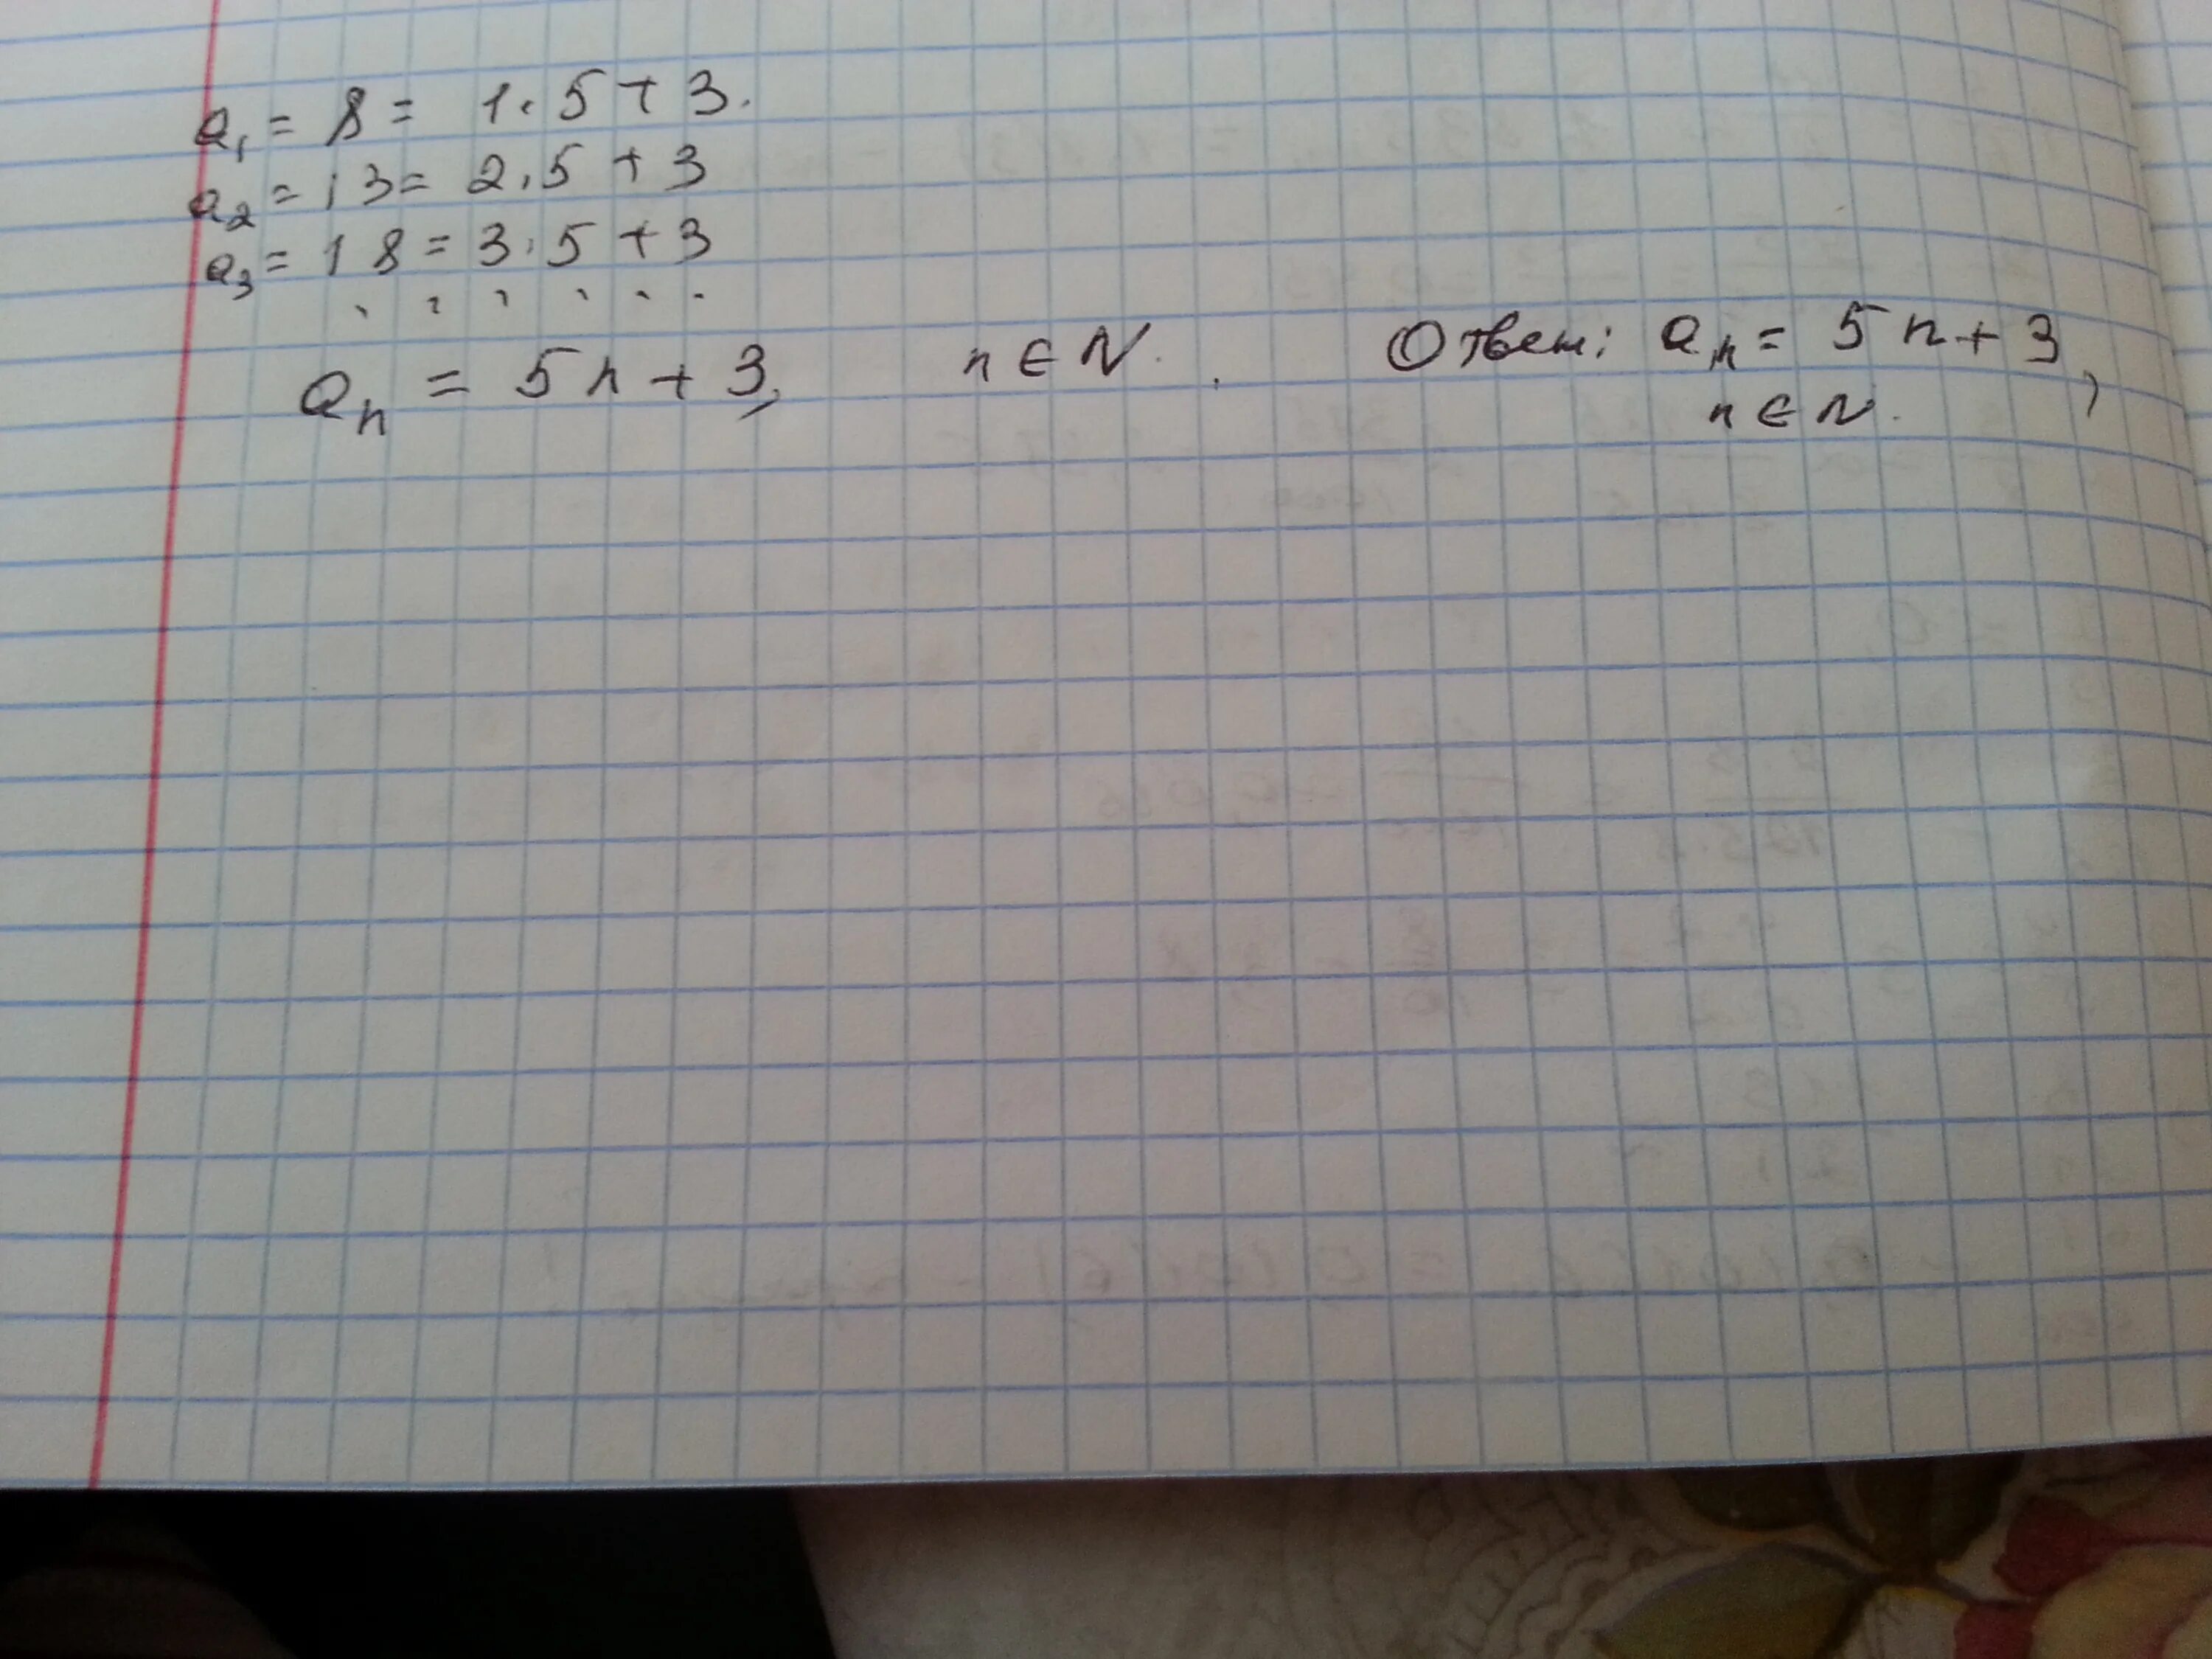 a₁ = 8 = 1·5 + 3.
a₂ = 13 = 2·5 + 3
a₃ = 18 = 3·5 + 3
. . . . . .
aₙ = 5n + 3, n ∈ N.
Ответ: aₙ = 5n + 3,
n ∈ N.